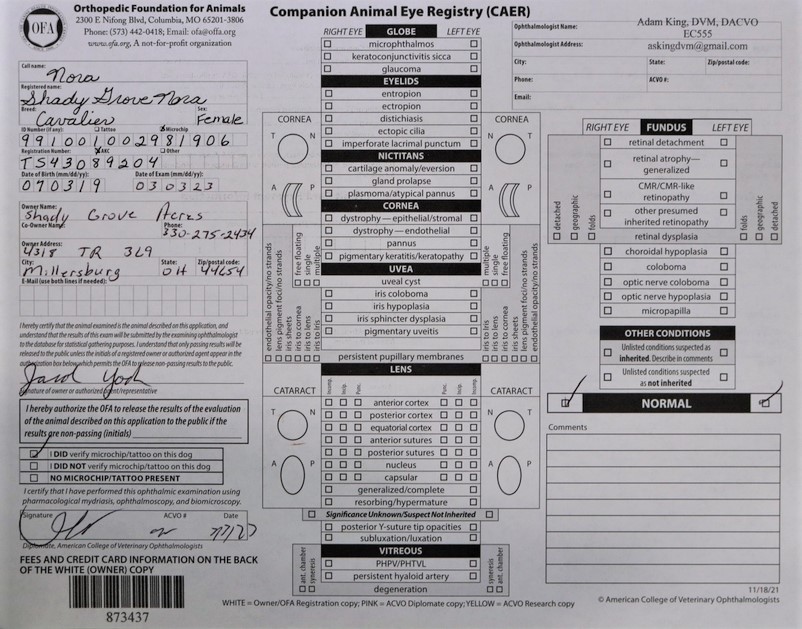 Orthopedic Foundation for Animals
2300 E Nifong Blvd, Columbia, MO 65201-3806
Phone: (573) 442-0418; Email: ofa@offa.org
www.ofa.org, A not-for-profit organization
OFA
Companion Animal Eye Registry (CAER)
Call name:
Nora
Registered name:
Shady Grove Nora
Breed: Sex:
Cavalier Female
ID Number (if any): Tattoo Microchip
991001002981906
Registration Number: AKC Other
TS43089204
Date of Birth (mm/dd/yy): Date of Exam (mm/dd/yy):
070319 030323
Owner Name:
Shady Grove Acres
Co-Owner Name: Phone:
330-275-2434
Owner Address:
4318 TR 369
City: State: Zip/postal code:
Millersburg OH 44654
E-Mail (use both lines if needed):
I hereby certify that the animal examined is the animal described on this application, and
understand that the results of this exam will be submitted by the examining ophthalmologist
to the database for statistical gathering purposes. I understand that only passing results will be
released to the public unless the initials of a registered owner or authorized agent appear in the
authorization box below which permits the OFA to release non-passing results to the public.
Signature of owner or authorized agent/representative
I hereby authorize the OFA to release the results of the evaluation
of the animal described on this application to the public if the
results are non-passing (initials)
I DID verify microchip/tattoo on this dog
I DID NOT verify microchip/tattoo on this dog
NO MICROCHIP/TATTOO PRESENT
I certify that I have performed this ophthalmic examination using
pharmacological mydriasis, ophthalmoscopy, and biomicroscopy.
Signature ACVO # Date
Diplomate, American College of Veterinary Ophthalmologists
FEES AND CREDIT CARD INFORMATION ON THE BACK
OF THE WHITE (OWNER) COPY
873437
RIGHT EYE GLOBE LEFT EYE
microphthalmos
keratoconjunctivitis sicca
glaucoma
EYELIDS
entropion
ectropion
distichiasis
ectopic cilia
imperforate lacrimal punctum
NICTITANS
cartilage anomaly/eversion
gland prolapse
plasmoma/atypical pannus
CORNEA
dystrophy — epithelial/stromal
dystrophy — endothelial
pannus
pigmentary keratitis/keratopathy
UVEA
uveal cyst
iris coloboma
iris hypoplasia
iris sphincter dysplasia
pigmentary uveitis
persistent pupillary membranes
CORNEA
T N
A P
free floating
single
multiple
endothelial opacity/no strands
lens pigment foci/no strands
iris sheets
iris to lens
iris to cornea
iris to iris
CORNEA
T N
A P
multiple
single
free floating
iris to iris
iris to cornea
iris to lens
iris sheets
lens pigment foci/no strands
endothelial opacity/no strands
LENS
CATARACT Incomp. Incip. Punc. Punc. Incip. Incomp. CATARACT
T N
A P
N T
A P
anterior cortex
posterior cortex
equatorial cortex
anterior sutures
posterior sutures
nucleus
capsular
generalized/complete
resorbing/hypermature
Significance Unknown/Suspect Not Inherited
posterior Y-suture tip opacities
subluxation/luxation
VITREOUS
PHPV/PHTVL
persistent hyaloid artery
degeneration
ant. chamber
syneresis
syneresis
ant. chamber
WHITE = Owner/OFA Registration copy; PINK = ACVO Diplomate copy; YELLOW = ACVO Research copy
Ophthalmologist Name: Adam King, DVM, DACVO
EC555
Ophthalmologist Address: askingdvm@gmail.com
City: State: Zip/postal code:
Phone: ACVO #:
Email:
RIGHT EYE FUNDUS LEFT EYE
retinal detachment
retinal atrophy—
generalized
CMR/CMR-like
retinopathy
other presumed
inherited retinopathy
retinal dysplasia
detached
geographic
folds
folds
geographic
detached
choroidal hypoplasia
coloboma
optic nerve coloboma
optic nerve hypoplasia
micropapilla
OTHER CONDITIONS
Unlisted conditions suspected as
inherited. Describe in comments
Unlisted conditions suspected
as not inherited
NORMAL
Comments
11/18/21
© American College of Veterinary Ophthalmologists